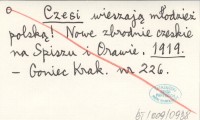 Czesi wieszają młodzież
polską! Nowe zbrodnie czeskie
na Spiszu i Orawie. 1919.
- Goniec Krak. nr 226.